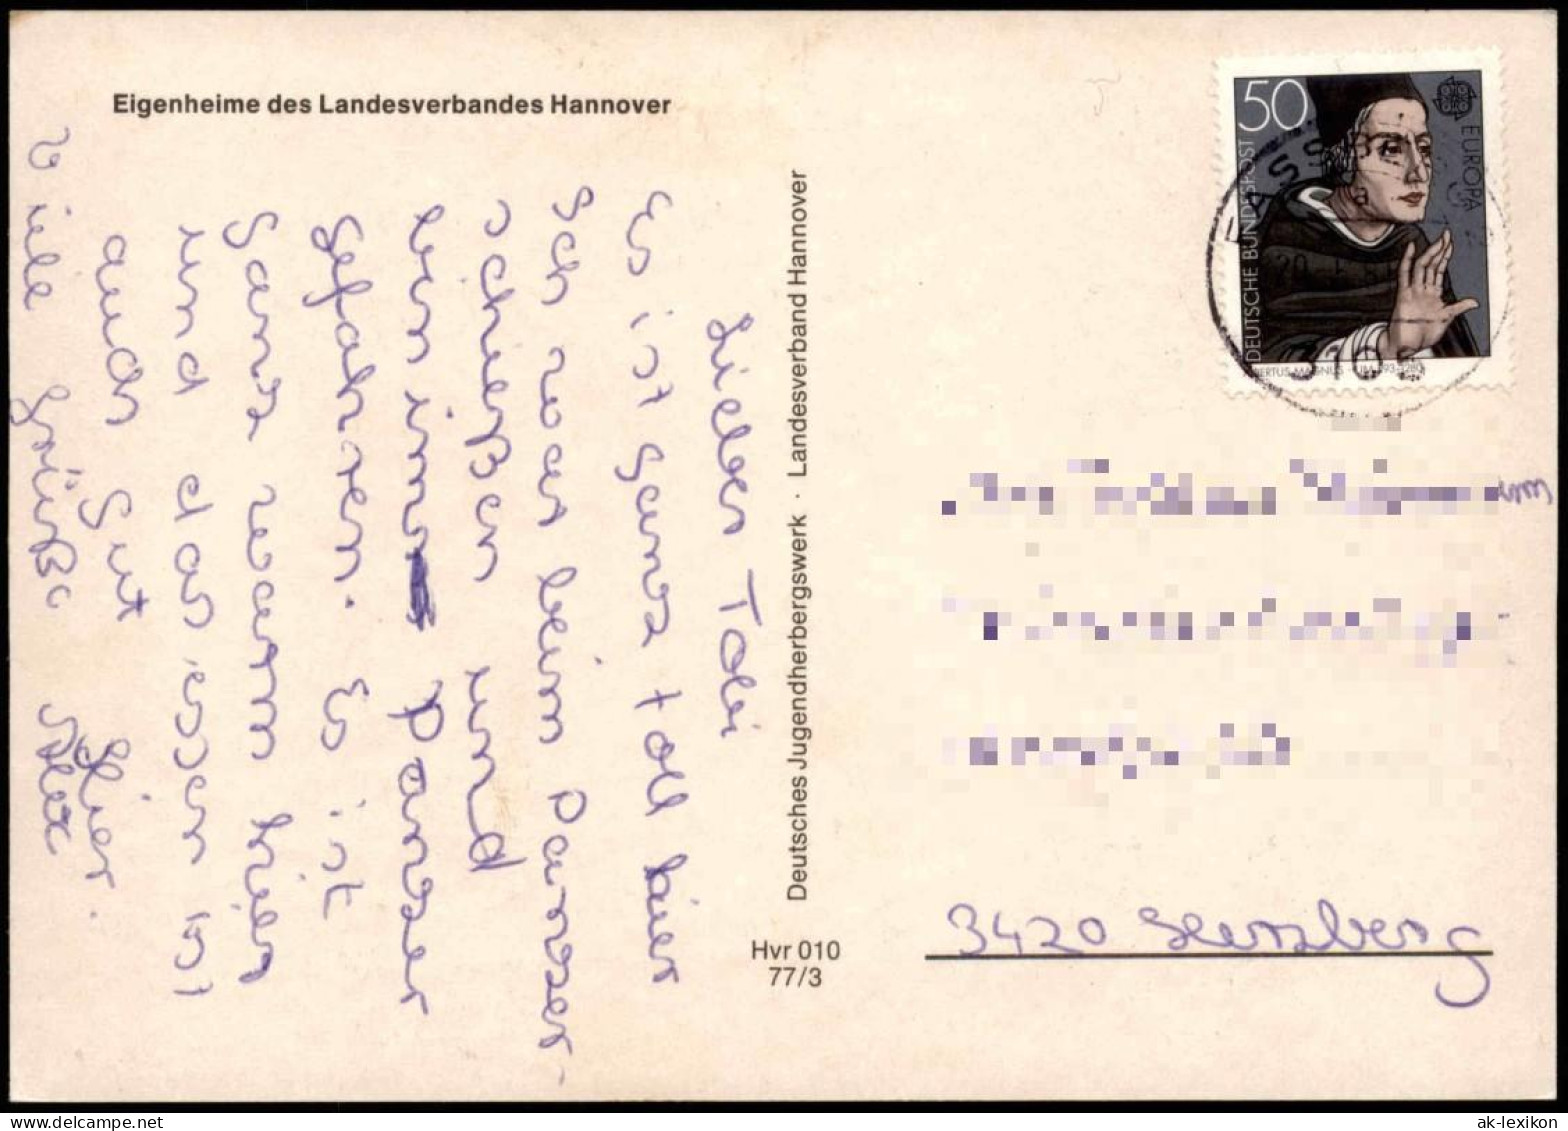 Eigenheime des Landesverbandes Hannover
Lieber Tobi
Es ist ganz toll hier
Ich war beim Panzer-
schießen und
bin im Panzer
gefahren. Es ist
ganz warm hier
und das essen ist
auch gut hier.
Viele Grüße Alex
Deutsches Jugendherbergswerk · Landesverband Hannover
Hvr 010
77/3
50
DEUTSCHE BUNDESPOST
EUROPA
3420 Herzberg
ak-lexikon.de